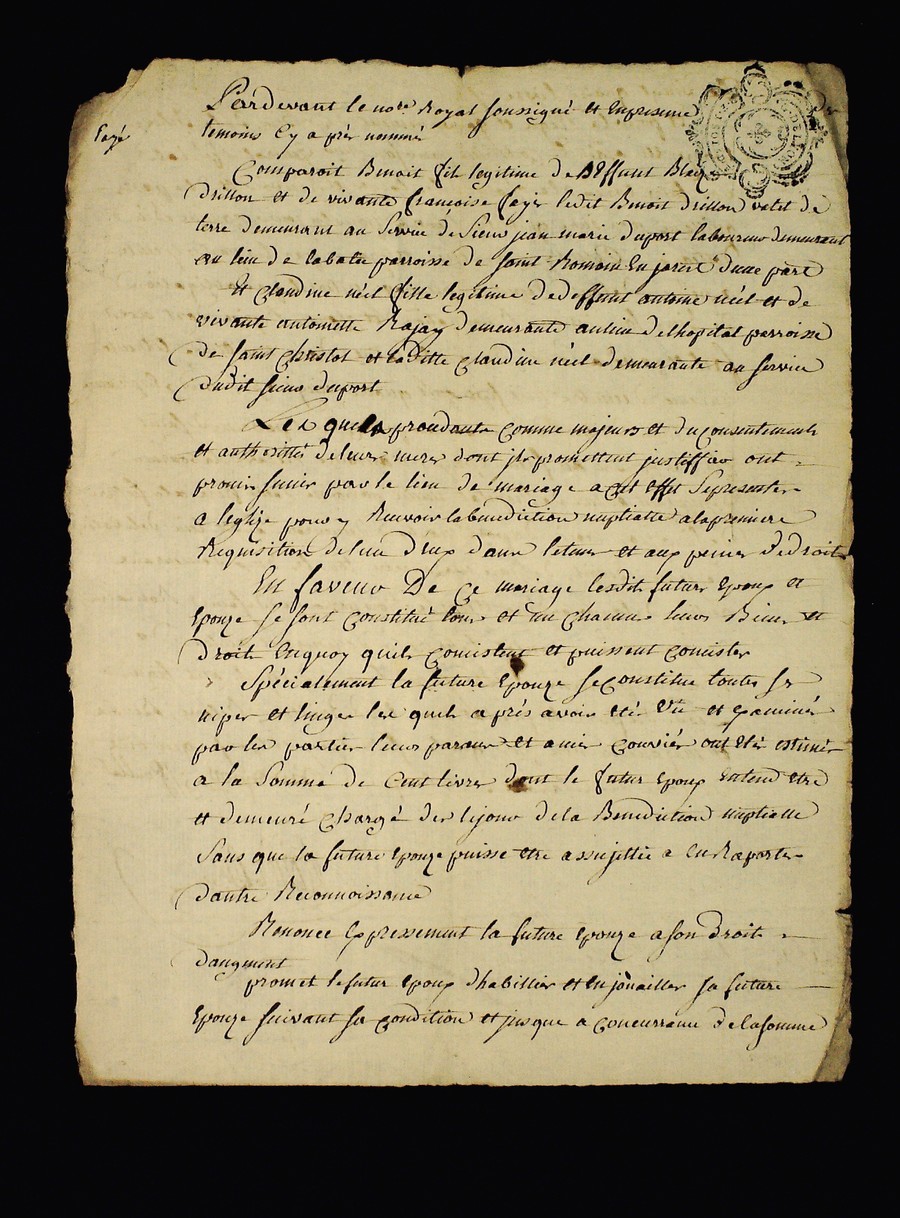 Pardevant le nore Royal soussigné et en presence des
temoins cy après nommé
payé
Comparoit Benoit fils legitime de Deffunt Blaize
drillon et de vivante françoise faÿs ledit Benoit drillon valet de
terre demeurant au service de Sieur jean marie duport laboureur demeurant
au lieu de labatie parroisse de Saint Romain En jarest d'une part
Et claudine néel fille legitime de deffunt antoine néel et de
vivante antoinette Rajay demeurante au lieu de lhopital parroisse
de saint Christot et laditte claudine néel demeurante au service
dudit sieur duport
Les quels procedants comme majeurs et du consentement
et authorité de leurs meres dont ils promettent justiffier ont
promis sunir par le lien de mariage a cet effet se presenter
a leglize pour y Recevoir la benediction nuptialle a la premiere
Requisition de lun deux dans letems et aux peines de droit
En faveur De Ce mariage lesdits futurs Epoux et
Epouze se sont constitué tous et un chacuns leurs Biens et
droits en quoy quils consistent et puissent consister
Spécialement la future Epouze se constitue toutes ses
nipes et linges les quels après avoir été vu et examinés
par les parties leurs parans et amis conviés ont été estimés
a la Somme de Cent livres dont le futur Epoux entend etre
et demeuré Chargé des lejour de la Benediction nuptialle
Sans que la future Epouze puisse etre assujettie a en Raporter
dautre Reconnoissance
Renonce Expressement la future Epouze a son droit
daugment
promet le futur Epoux dhabillier et enjoüailler sa future
Epouze suivant sa condition et jusque a concurrance de la somme